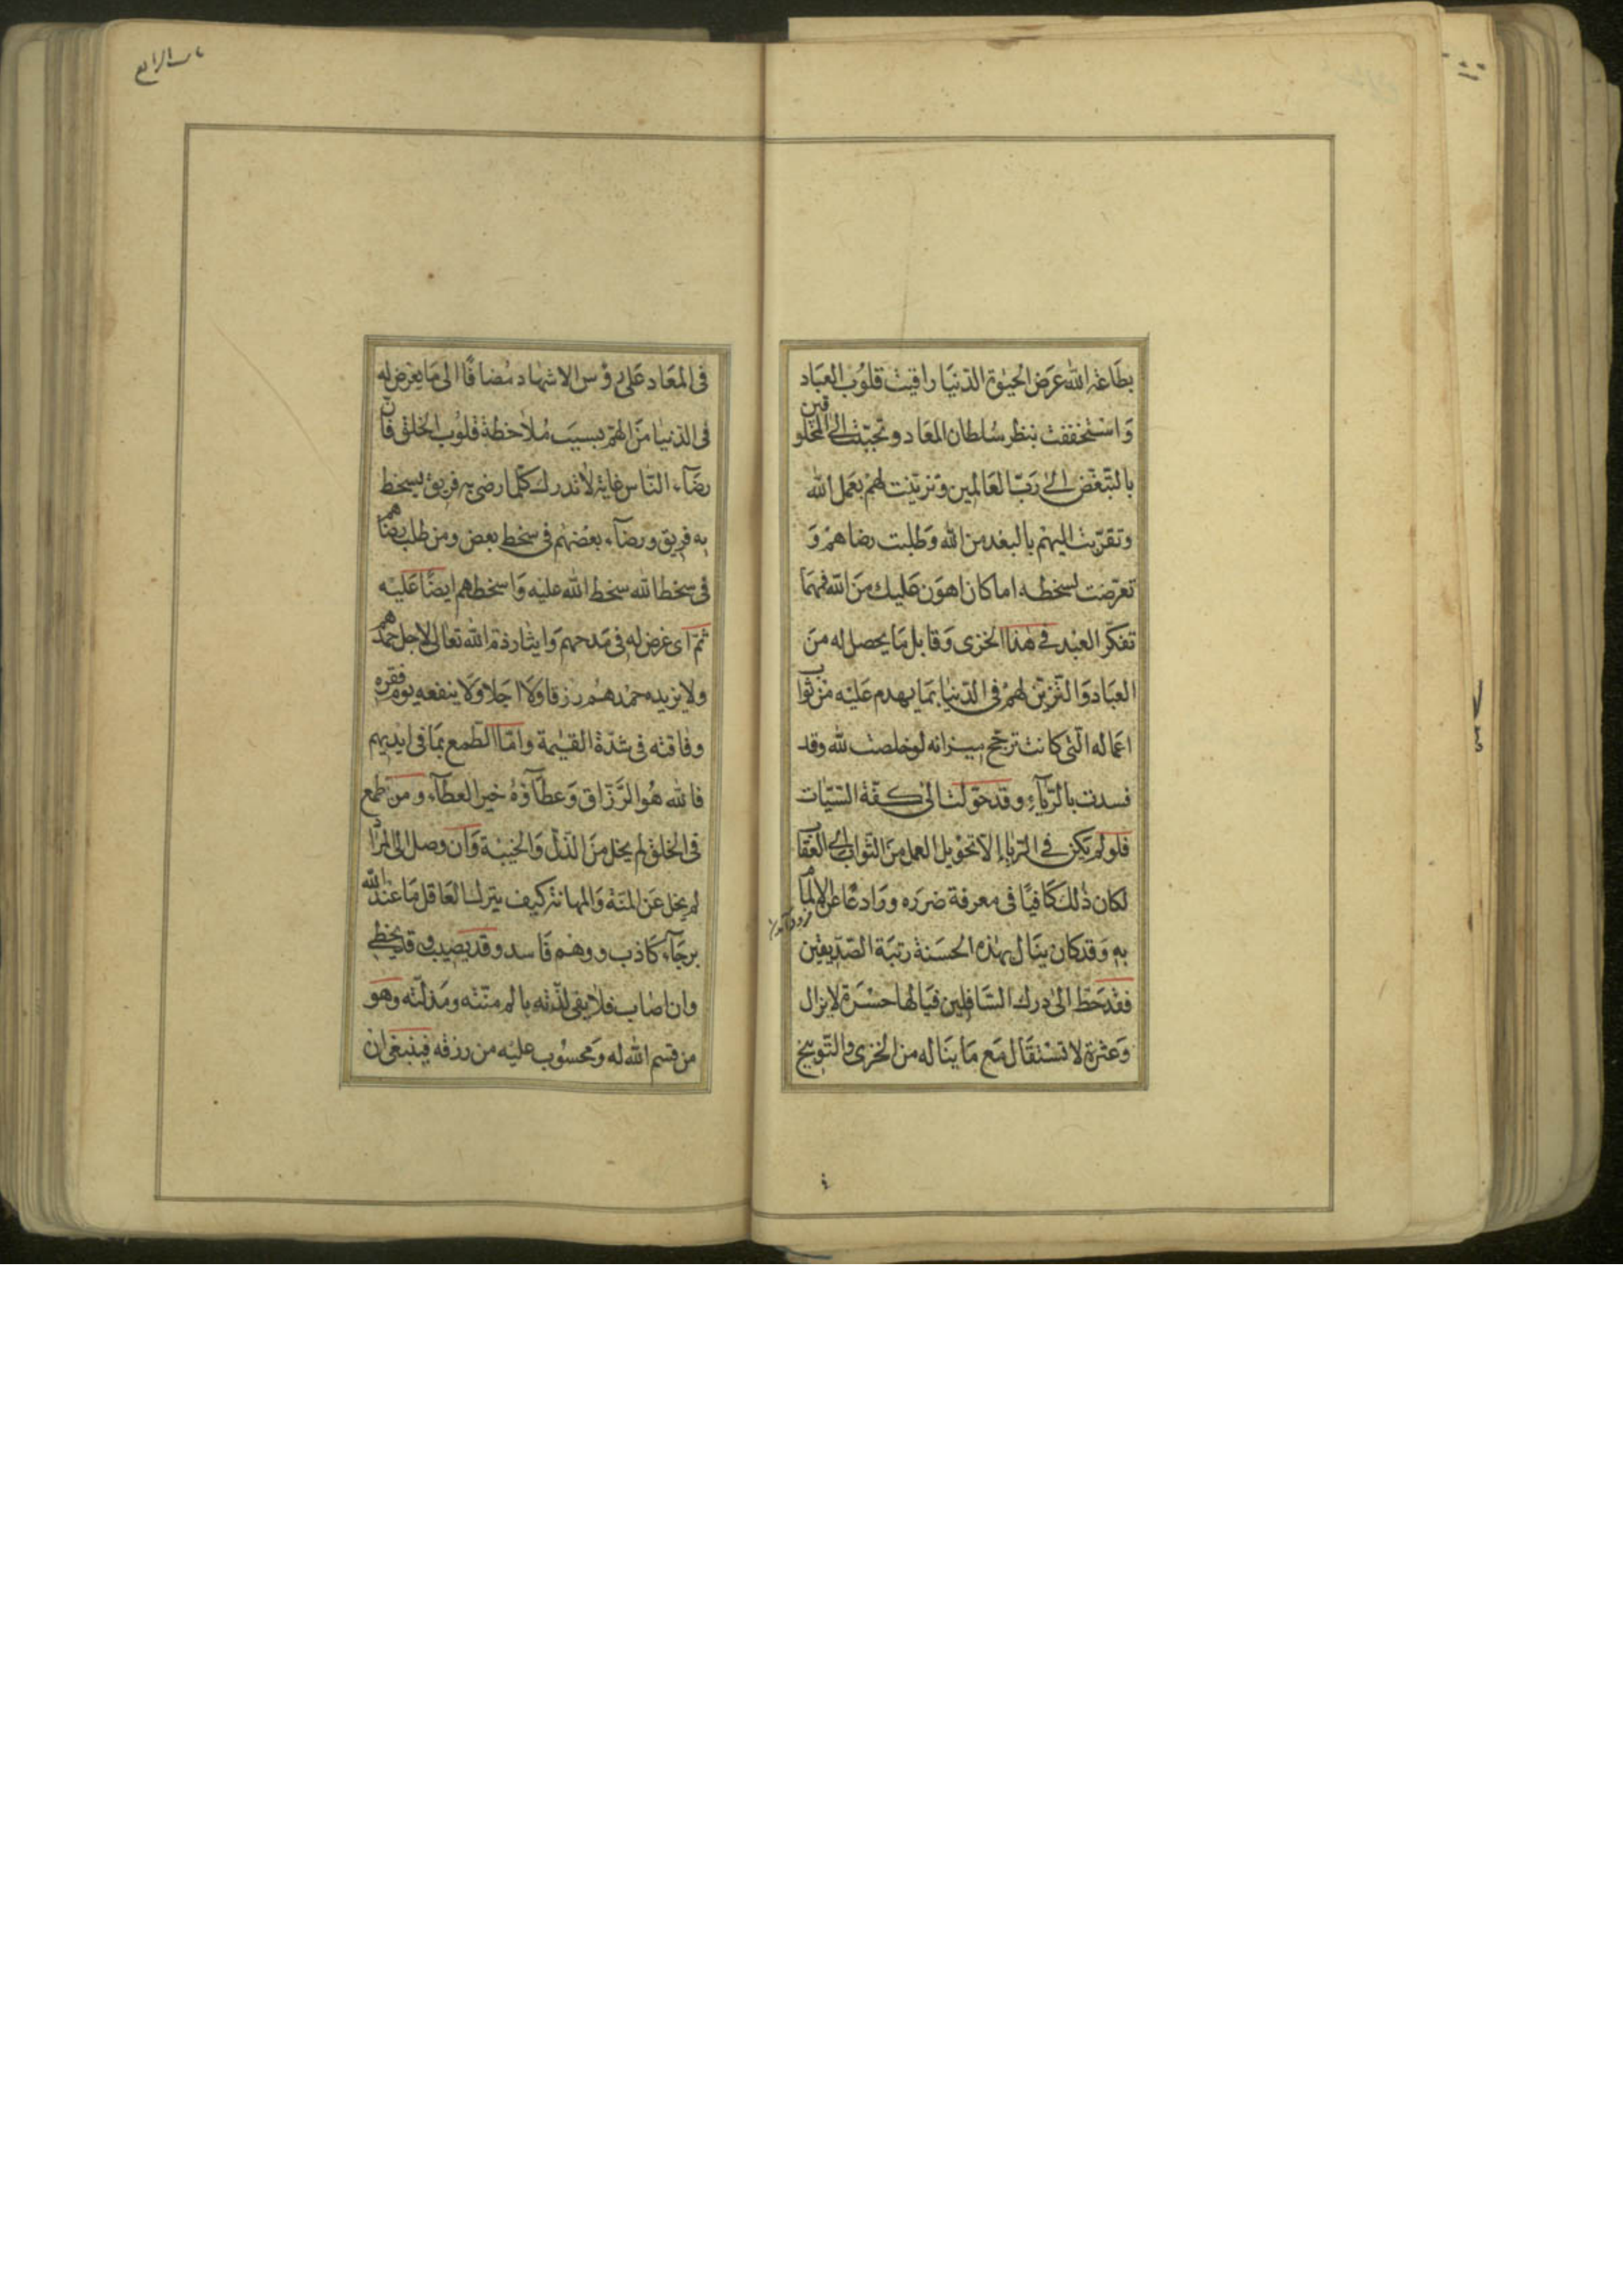 بطَاعَةِ الله عَرَض الحيٰوة الدّنيَا راقبتَ قلوُب العبَاد
وَاسْتخففت بنظر سُلطان المعَاد وتحبّبت الى المخلوقين
بالتّبغّض الىٰ رَبّ العَالمين وَتزيّنت لهمْ بعَمل الله
وتقرّبت اليهم بالبعد من الله وَطلبت رضاهمْ وَ
تعرّضت لسخطه اما كان اهوَن عَليك منَ الله فمهمَا
تفكّر العبْد فى هٰذا الخزى وَقابل مَا يحصل له منَ
العبَاد وَالتّزيّن لهمْ فى الدّنيٰا بمَا يهدم عَليْه من ثوٰاب
اعماله الّتى كانت ترجّح ميزانه لو خلصت لله وقد
فسدت بالرّيآءِ وقد حوّلت الىٰ كفّة السّيّات
فلو لم يكن فى الرّياء إلاّ تحْويل العمل منَ الثّواب الى العقاب
لكان ذٰلك كَافيًا فى معرفة ضرَره ورَادعًا عن الالمام
به وَقد كان ينَال بهٰذه الحسَنة رتبَة الصّدّيقين
فقدْ حَطّ الىٰ درك السّافلين فيَا لهٰا حسْرَة لا يزال
وَعثرة لا تسْتقَال مَع مَا ينَاله من الخزى والتّوبيخ
فى المعَاد عَلىٰ رؤس الاشهٰاد مُضافًا الى مَا يعْرض له
فى الدّنيٰا منَ الهمّ بسبَب مُلاٰحظة قلوُب الخلق فانّ
رضَآء النّاس غاية لاٰ تدرك كلّما رضى به فريق يسخط
به فريق ورضآء بعْضهم فى سخط بعض ومن طلب رضاهم
فى سخط الله سخط الله عليه وَاسخطهم ايضًا عَليْه
ثمّ اى غرض له فى مَدحهم وَايثار ذمّ الله تعالى لاجل حمدهم
ولا يزيده حمْدهمْ رزقا وَلاَ اجَلا وَلا ينفعه يوم فقره
وفاقته فى شدّة القيٰمة وامّا الطّمع بمَا فى ايديهم
فالله هُو الرَّزّاق وَعطَآؤهُ خير العطآء ومن طمع
فى الخلق لم يخل منَ الذّلّ وَالخيبْة وَان وصل الى المراد
لم يخل عَن المنّة وَالمهانة فكيف يترك العَاقل مَا عندَ الله
برجَآء كَاذب ووهْم فَاسد وقد يصيب وقد يخطى
وان اصٰاب فلاٰ يفى لذّته بالم منّته ومَذلّته وهو
من قسم الله له وَمحسُوب عليْه من رزقه فينبغى ان